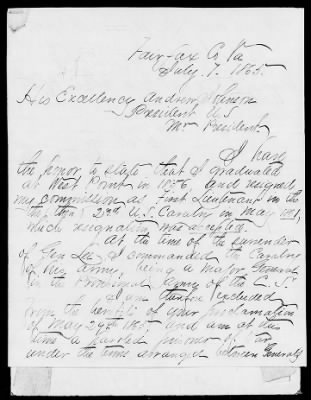 Fairfax Co Va
July 7. 1865.
His Excellency Andrew Johnson
President U S
Mr President.
I have
the honor to state that I graduated
at West Point in 1856 and resigned
my commission as First Lieutenant in the
2nd U. S. Cavalry in May 1861,
which resignation was accepted.
At the time of the surrender
of Gen Lee, I commanded the Cavalry
of his army, being a Major General
in the Provisional Army of the C. S.
I am therefore excluded
from the benefits of your proclamation
of May 29th 1865 and am at this
time a paroled prisoner of war
under the terms arranged between Generals